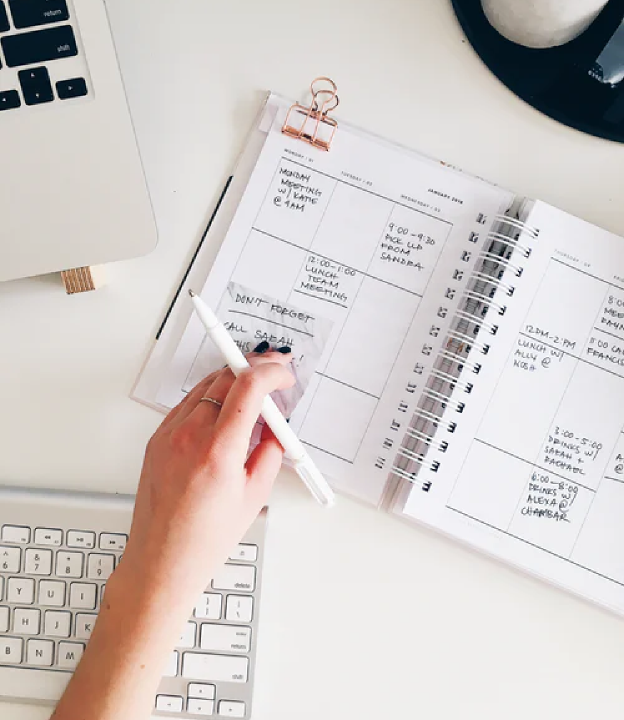 return
shift
MONDAY
TUESDAY
WEDNESDAY
JANUARY
MONDAY
MEETING
W/ KATIE
@ 9AM
9:00-9:30
PICK UP
FROM
SANDRA
12:00-1:00
LUNCH
TEAM
MEETING
DON'T FORGET
CALL SARAH
!
THURSDAY
12PM-2PM
LUNCH W/
ALLY @
3:00-5:00
DRINKS W/
SARAH +
RACHAEL
6:00-8:00
DRINKS W/
ALEXA @
CHAMBAR
&
7
8
9
6
Y
U
I
H
J
K
B
N
M
delete
return
shift